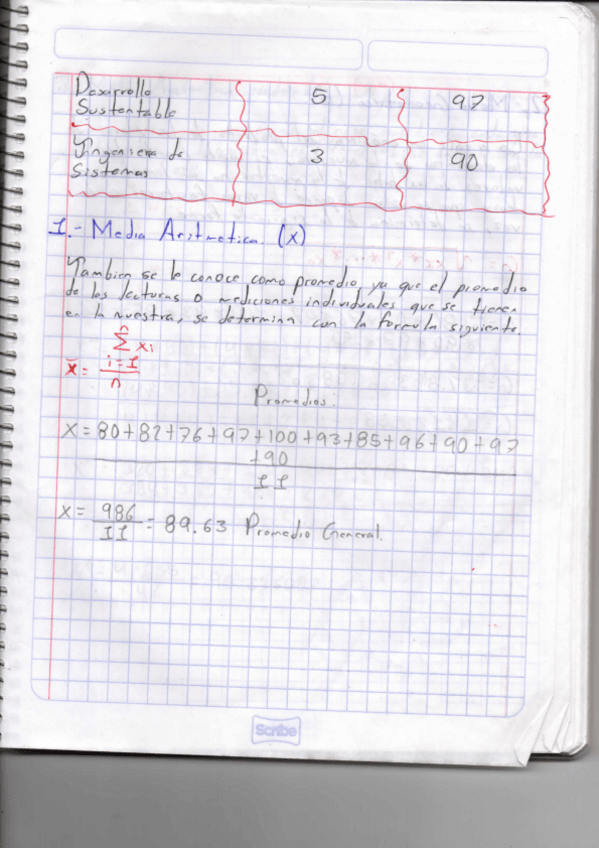 Desarrollo 5 97
Sustentable
Ingenieria de 3 90
Sistemas
I.- Media Aritmetica (x)
Tambien se le conoce como promedio ya que el promedio
de las lecturas o mediciones individuales que se tienen
en la muestra, se determina con la formula siguiente.
n
∑ xi
x̄ = i = I
n
Promedios.
X = 80+82+76+97+100+93+85+96+90+97
+90
II
X = 986 = 89.63 Promedio General.
II
Scribe